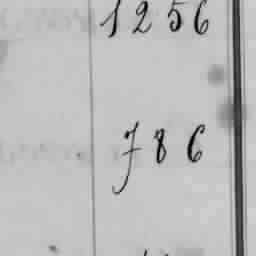 1256
786